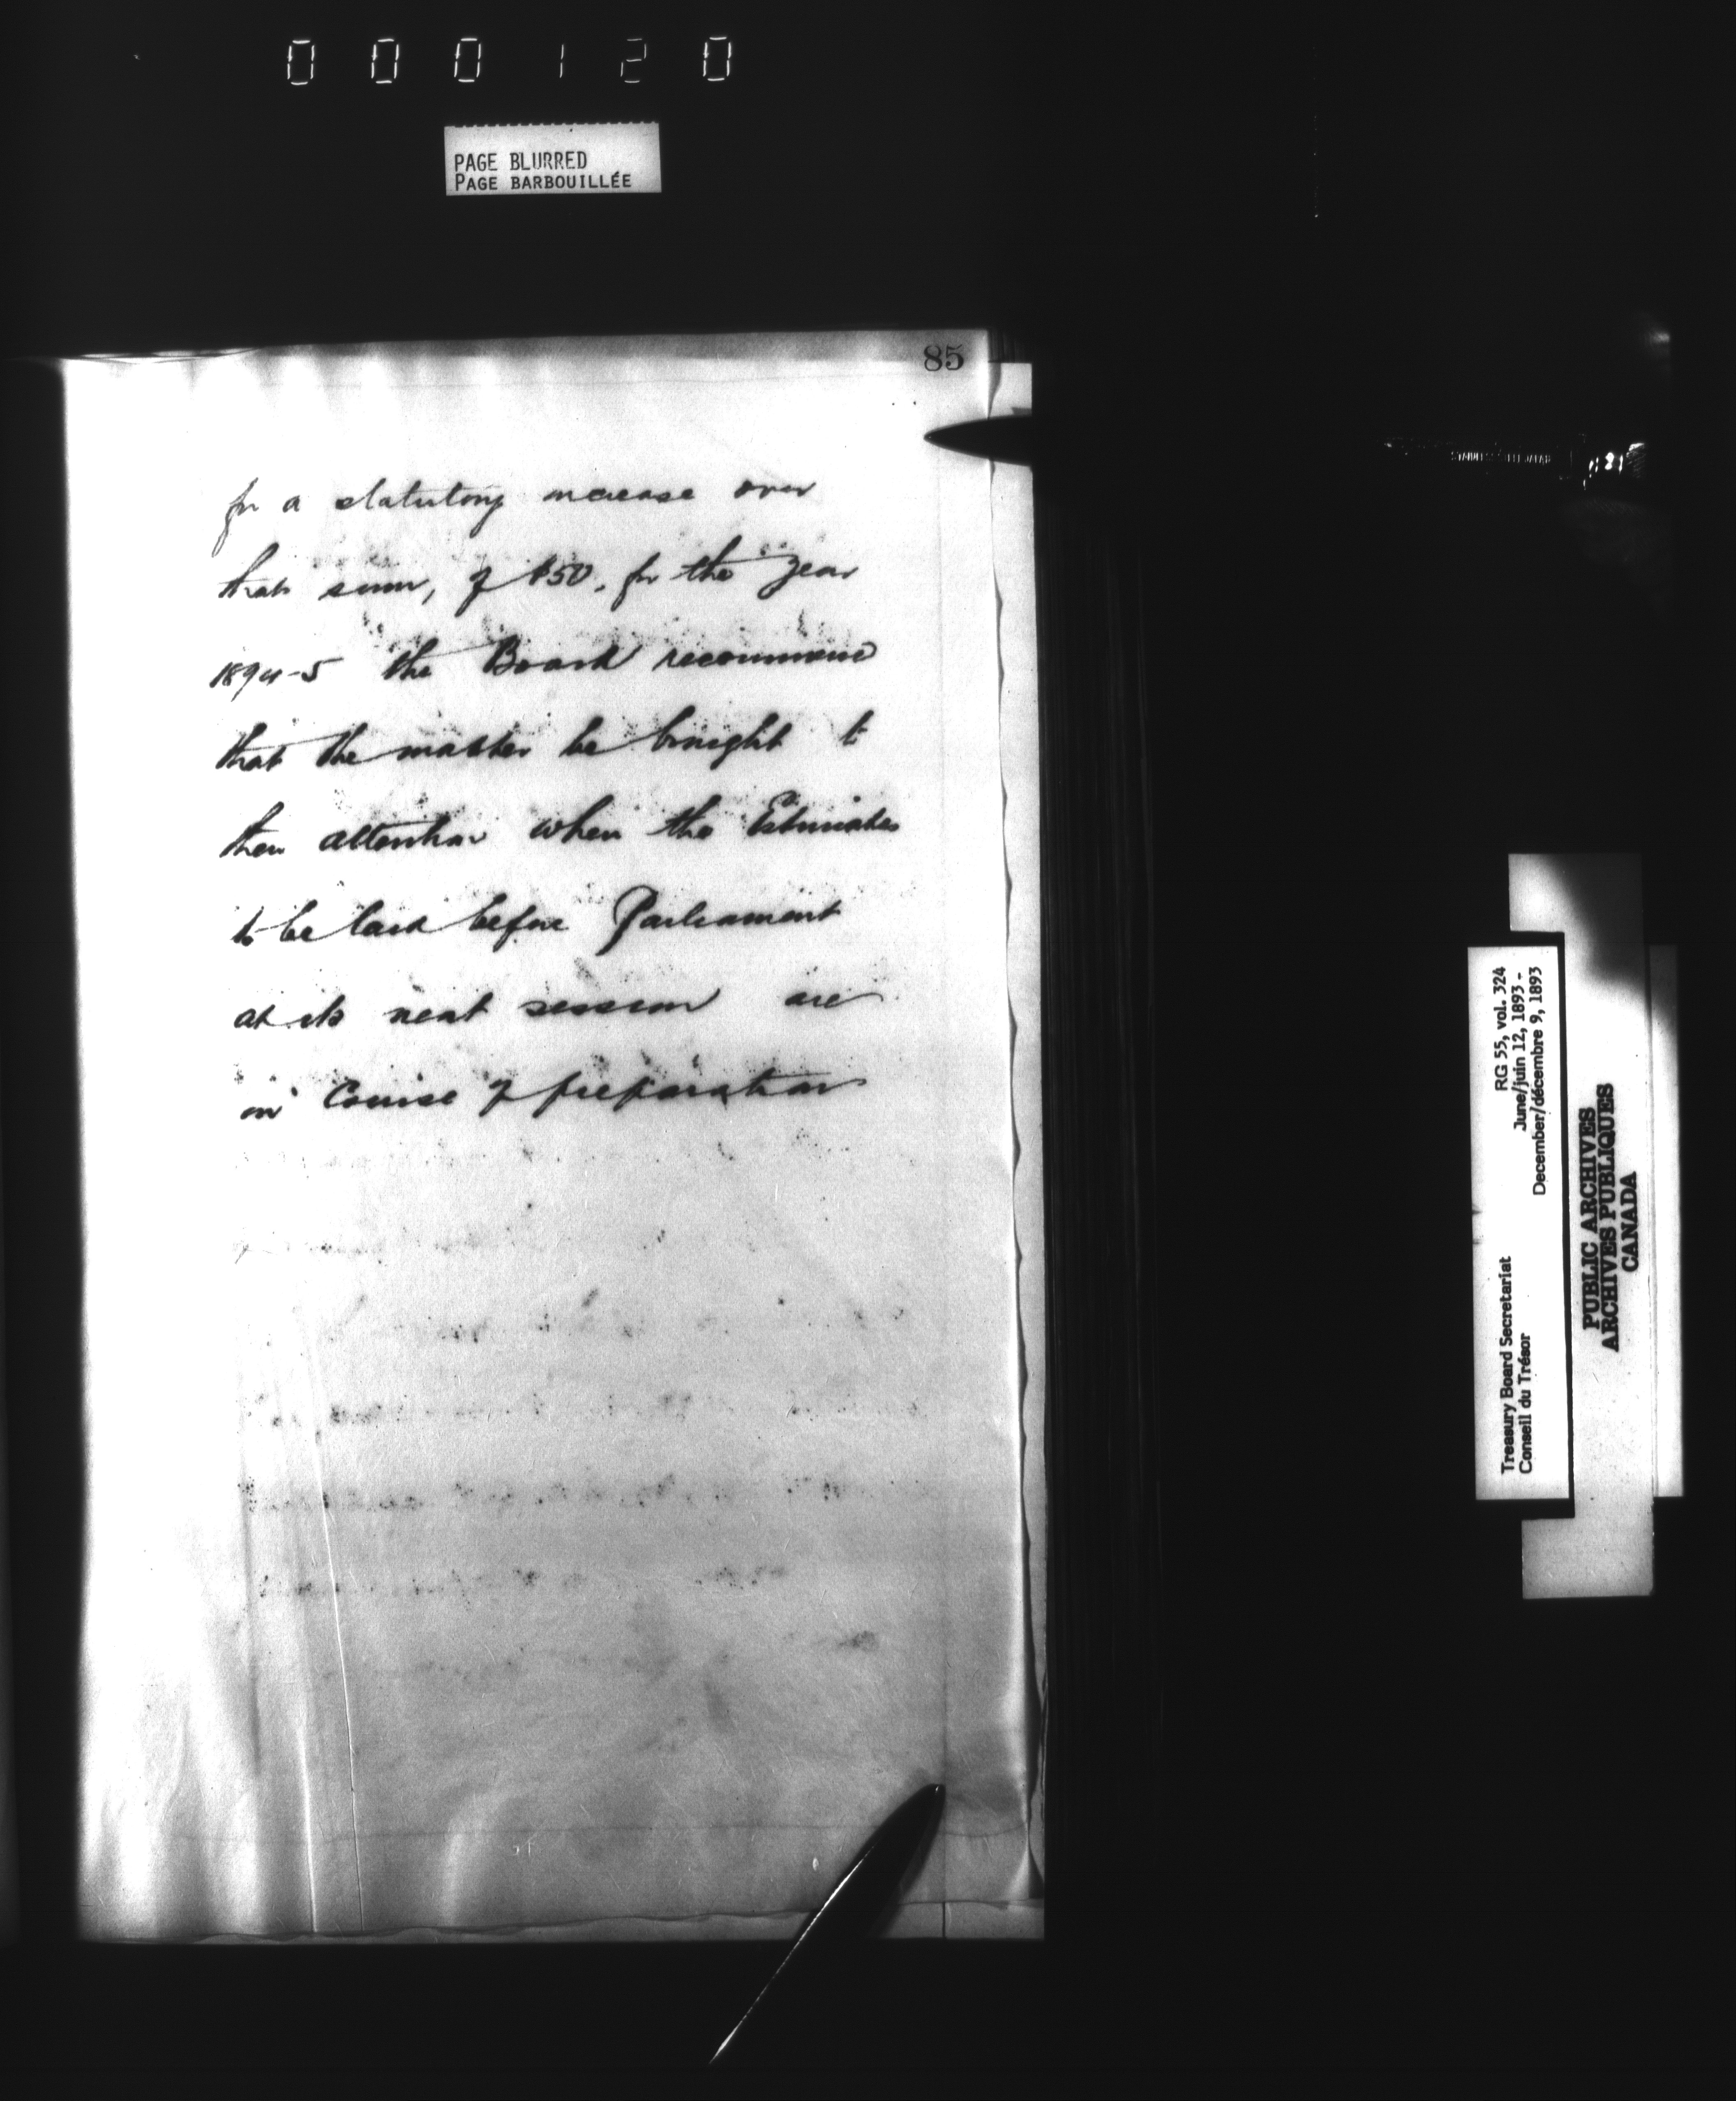 000120
PAGE BLURRED
PAGE BARBOUILLÉE
85
for a statutory increase over
that sum, of $50, for the year
1894-5 the Board recommend
that the matter be brought to
their attention when the Estimates
to be laid before Parliament
at its next session are
in course of preparation
Treasury Board Secretariat RG 55, vol. 324
Conseil du Trésor June/juin 12, 1893 -
December/décembre 9, 1893
PUBLIC ARCHIVES
ARCHIVES PUBLIQUES
CANADA